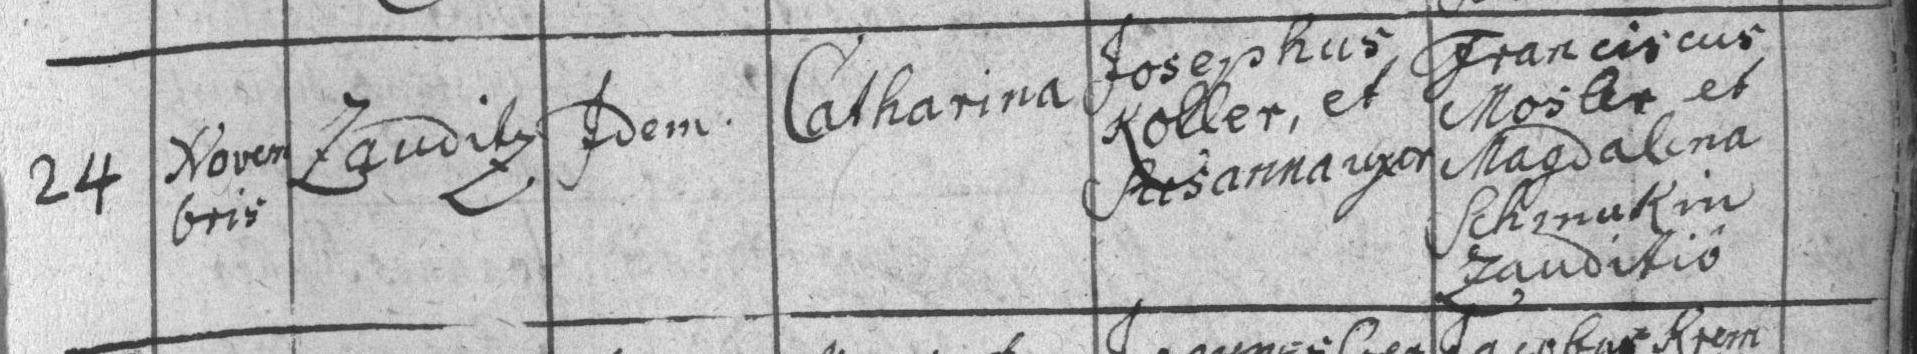 24
Novem
bris
Zauditz
Idem.
Catharina
Josephus
Koller, et
Susanna uxor
Franciscus
Mosler et
Magdalena
Schmukin
Zauditio